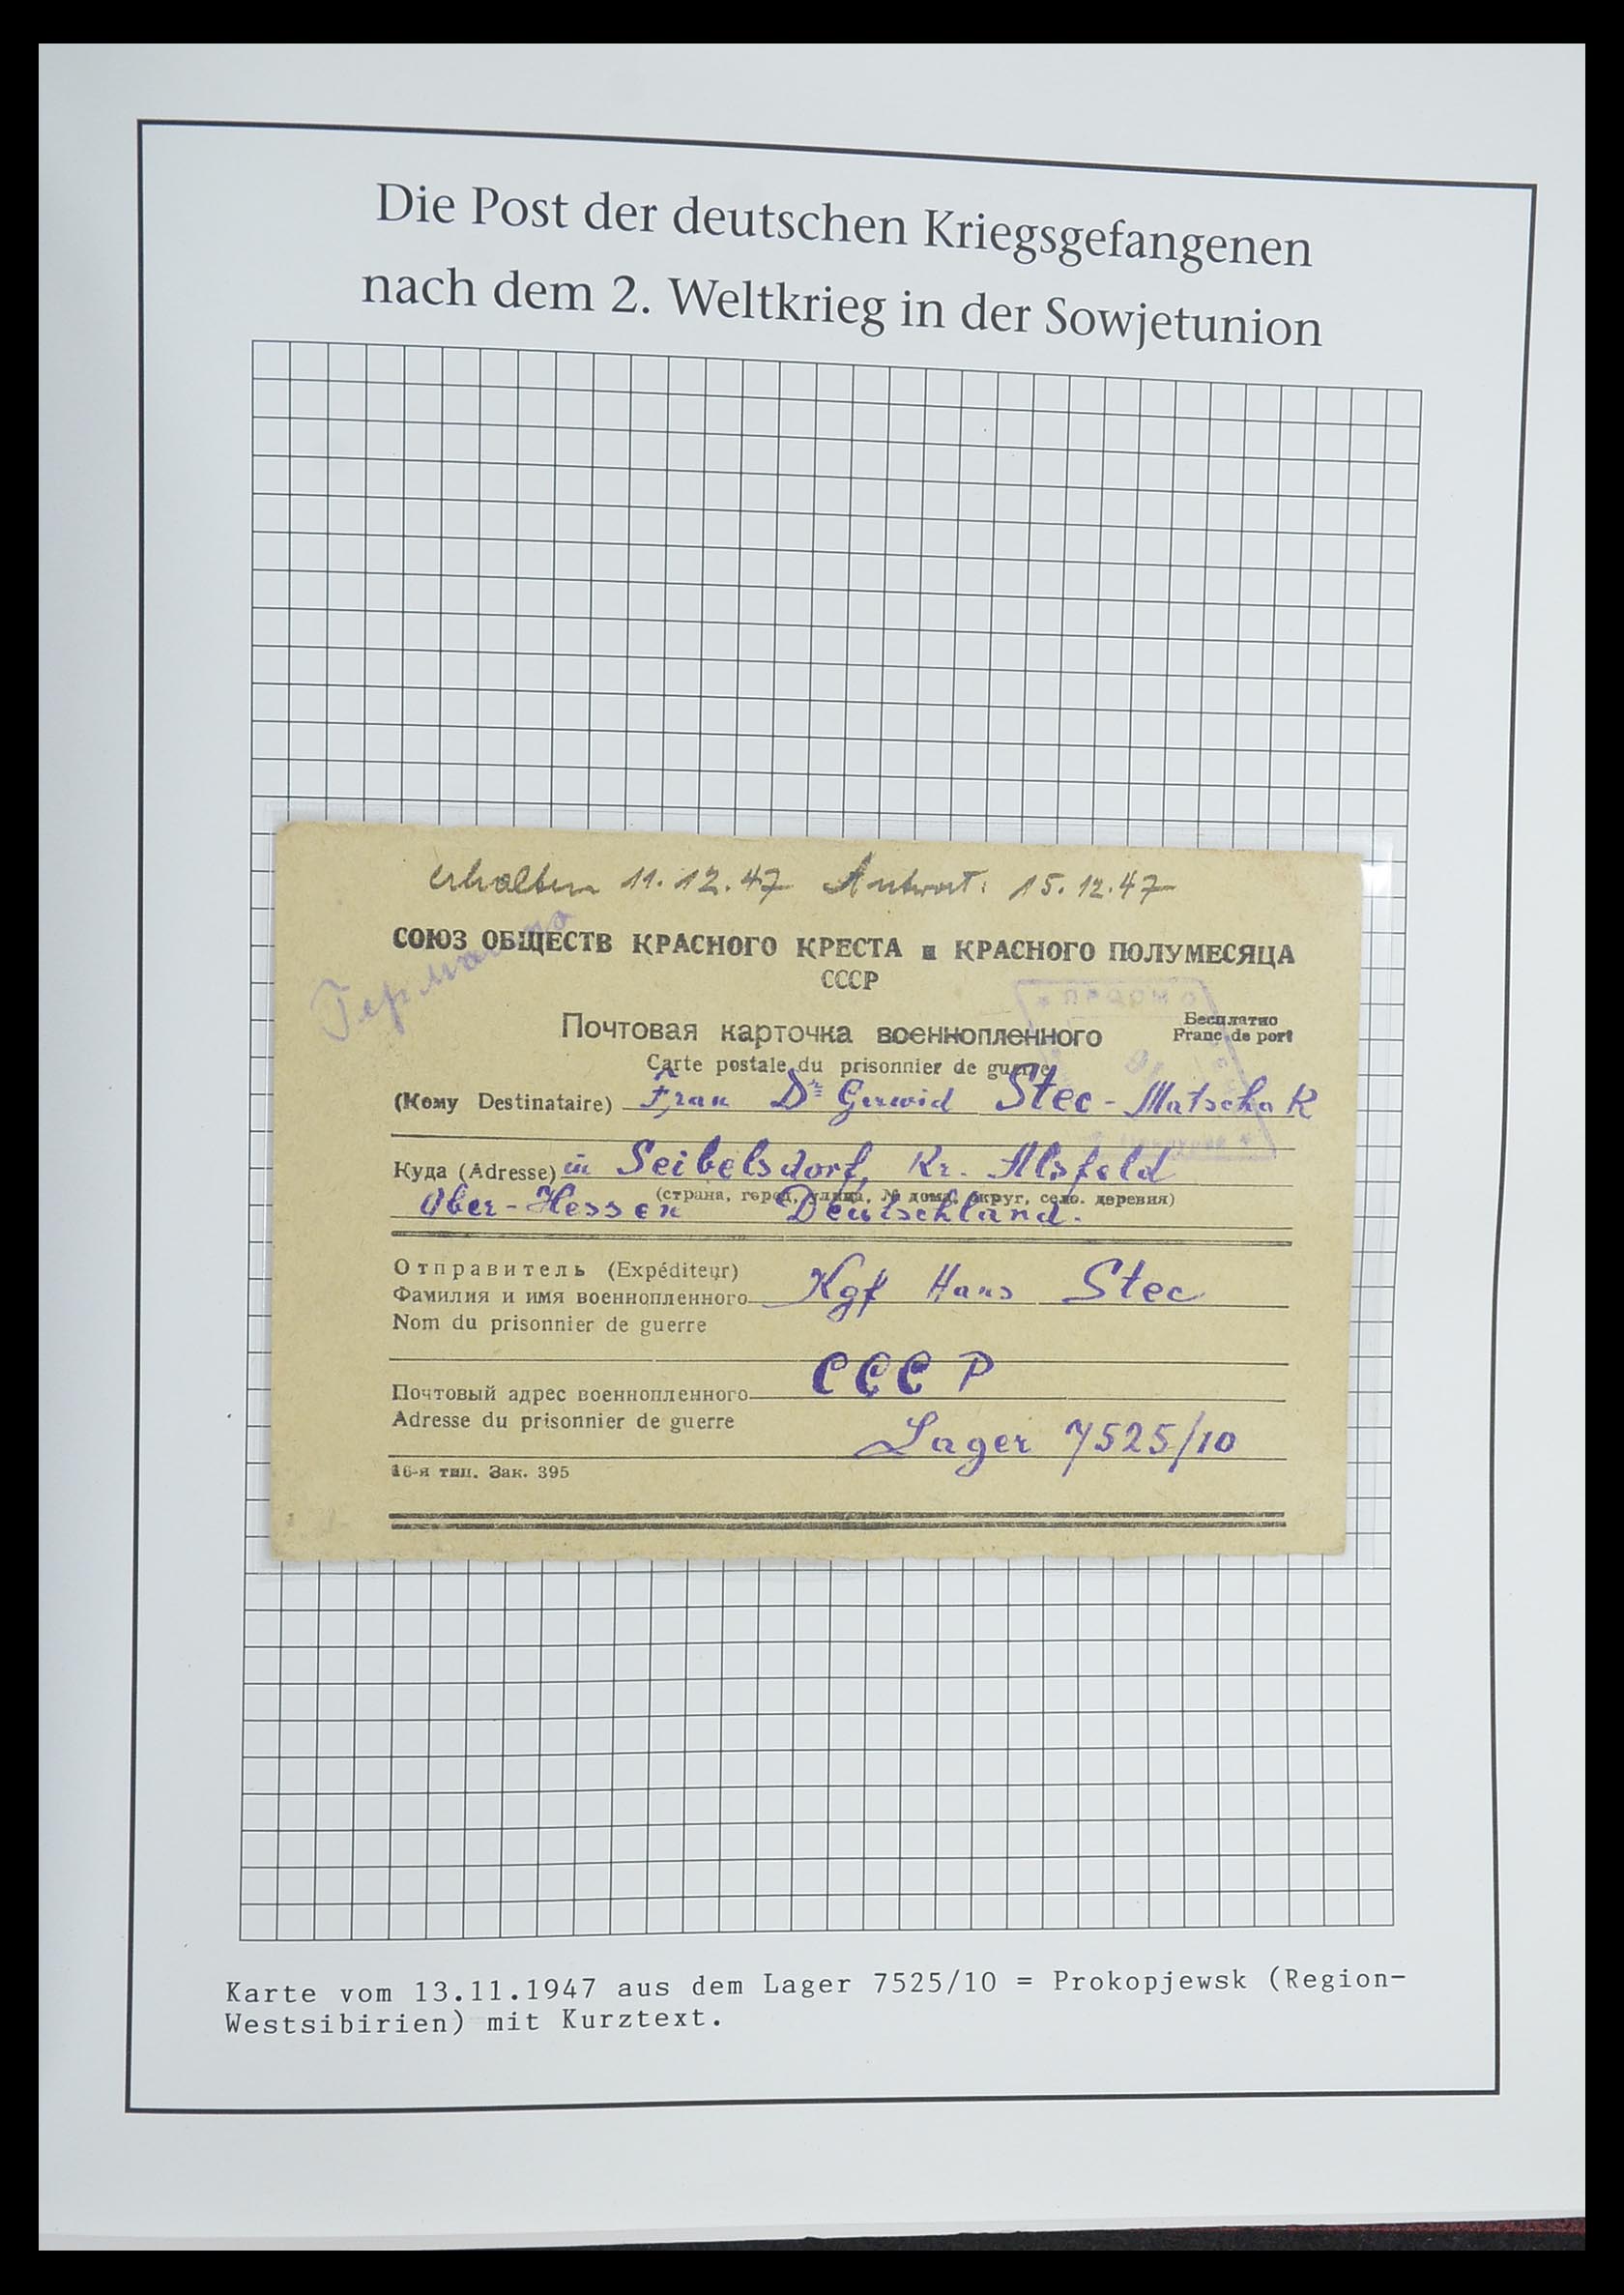 Die Post der deutschen Kriegsgefangenen
nach dem 2. Weltkrieg in der Sowjetunion
erhalten 11.12.47 Antwort: 15.12.47
Германия
СОЮЗ ОБЩЕСТВ КРАСНОГО КРЕСТА и КРАСНОГО ПОЛУМЕСЯЦА
СССР
Почтовая карточка военнопленного
Бесплатно
Franc de port
Carte postale du prisonnier de guerre
(Кому Destinataire) Frau Dr Gerwid Stec-Matschak
Куда (Adresse) in Seibelsdorf, Kr. Alsfeld
(страна, город, улица, № дома, округ, село, деревня)
Ober-Hessen Deutschland.
Отправитель (Expéditeur)
Фамилия и имя военнопленного Kgf Hans Stec
Nom du prisonnier de guerre
СССР
Почтовый адрес военнопленного
Adresse du prisonnier de guerre
Lager 7525/10
16-я тип. Зак. 395
Karte vom 13.11.1947 aus dem Lager 7525/10 = Prokopjewsk (Region-
Westsibirien) mit Kurztext.